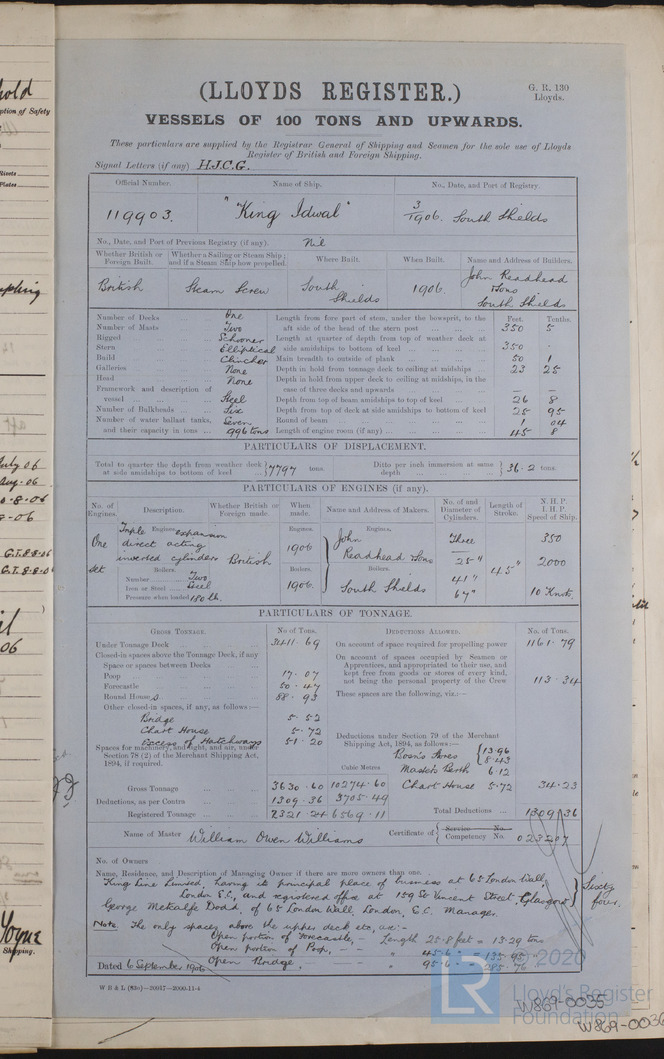 (LLOYDS REGISTER.)
G. R. 130
Lloyds.
VESSELS OF 100 TONS AND UPWARDS.
These particulars are supplied by the Registrar General of Shipping and Seamen for the sole use of Lloyds
Register of British and Foreign Shipping.
Signal Letters (if any) H.J.C.G.
Official Number. Name of Ship. No., Date, and Port of Registry.
119903. "King Idwal" 3/1906. South Shields
No., Date, and Port of Previous Registry (if any). Nil
Whether British or Foreign Built. Whether a Sailing or Steam Ship; and if a Steam Ship how propelled. Where Built. When Built. Name and Address of Builders.
British Steam Screw South Shields 1906. John Readhead & Sons South Shields
Number of Decks One
Number of Masts Two
Rigged Schooner
Stern Elliptical
Build Clincher
Galleries None
Head None
Framework and description of vessel Steel
Number of Bulkheads Six
Number of water ballast tanks, and their capacity in tons Seven 996 tons
Feet. Tenths.
Length from fore part of stem, under the bowsprit, to the aft side of the head of the stern post 350 5
Length at quarter of depth from top of weather deck at side amidships to bottom of keel 350 -
Main breadth to outside of plank 50 1
Depth in hold from tonnage deck to ceiling at midships 23 25
Depth in hold from upper deck to ceiling at midships, in the case of three decks and upwards — —
Depth from top of beam amidships to top of keel 26 8
Depth from top of deck at side amidships to bottom of keel 25 95
Round of beam 1 04
Length of engine room (if any) 45 8
PARTICULARS OF DISPLACEMENT.
Total to quarter the depth from weather deck at side amidships to bottom of keel 7797 tons.
Ditto per inch immersion at same depth 36.2 tons.
PARTICULARS OF ENGINES (if any).
No. of Engines. Description. Whether British or Foreign made. When made. Name and Address of Makers. No. of and Diameter of Cylinders. Length of Stroke. N. H. P. I. H. P. Speed of Ship.
One Set
Engines
Triple expansion
direct acting
inverted cylinders
Boilers.
Number Two
Iron or Steel Steel
Pressure when loaded 180 lb.
British
Engines. 1906
Boilers. 1906.
Engines,
John
Readhead & Sons
Boilers.
South Shields
Three
25"
41"
67"
45"
350
2000
10 Knots
PARTICULARS OF TONNAGE.
GROSS TONNAGE. No of Tons.
Under Tonnage Deck 3411.69
Closed-in spaces above the Tonnage Deck, if any
Space or spaces between Decks
Poop 17.07
Forecastle 50.47
Round Houses 88.93
Other closed-in spaces, if any, as follows:—
Bridge 5.52
Chart House 5.72
Excess of Hatchways 51.20
Spaces for machinery, and light, and air, under Section 78 (2) of the Merchant Shipping Act, 1894, if required.
Cubic Metres
Gross Tonnage 3630.60 10274.60
Deductions, as per Contra 1309.36 3705.49
Registered Tonnage 2321.24 6569.11
DEDUCTIONS ALLOWED. No. of Tons.
On account of space required for propelling power 1161.79
On account of spaces occupied by Seamen or Apprentices, and appropriated to their use, and kept free from goods or stores of every kind, not being the personal property of the Crew 113.34
These spaces are the following, viz.:—
Deductions under Section 79 of the Merchant Shipping Act, 1894, as follows:—
Bosn's Stores 13.96 8.43
Master's Berth 6.12
Chart House 5.72
34.23
Total Deductions 1309.36
Name of Master William Owen Williams
Certificate of Service No.
Competency No. 023207
No. of Owners
Name, Residence, and Description of Managing Owner if there are more owners than one.
King Line Limited, having its principal place of business at 65 London Wall,
London E.C., and registered office at 159 St Vincent Street, Glasgow
Sixty four.
George Metcalfe Dodd, of 65 London Wall, London, E.C. Manager.
Note. The only spaces above the upper deck etc, are:-
Open portion of Forecastle, - Length 25.8 feet = 13.29 tons
Open portion of Poop, - - " 45.6 " = 135.95 "
Open Bridge, - - " 95.6 " = 285.76 "
Dated 6 September 1906
W B & L (83o)—20017—2000-11-4
2020
LR
Lloyd's Register
Foundation
W869-0035
W869-0036